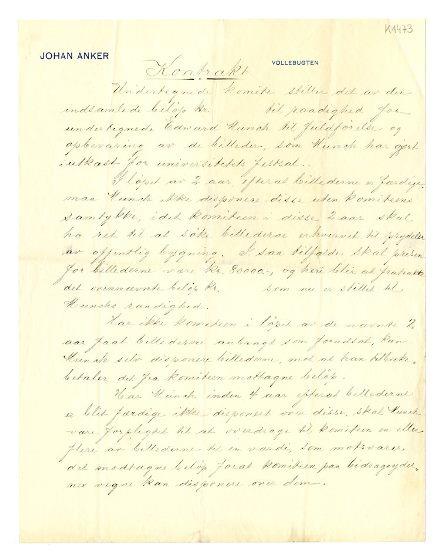 K1473
JOHAN ANKER
VOLLEBUGTEN
Kontrakt
Undertegnede komite stiller det av det
indsamlede beløp kr. til raadighed for
undertegnede Edvard Munch til fuldførelse og
opbevaring av de billeder, som Munch har gjort
utkast for universitetets festsal.
I løpet av 2 aar efterat billederne er færdige
maa Munch ikke disponere disse uten komiteens
samtykke, idet komiteen i disse 2 aar skal
ha ret til at søke billederne erhvervet til prydelse
av offentlig bygning. I saa tilfælde skal prisen
for billederne være kr. 80000, og heri blir at fratrække
det overnævnte beløp kr. som nu er stillet til
Munchs raadighed.
Har ikke komiteen i løpet av de nævnte 2
aar faat billederne anbragt som forudsat, kan
Munch selv disponere billederne, mot at han tilbake-
betaler det fra komiteen mottagne beløp.
Har Munch inden 4 aar efterat billederne
er blit færdige ikke disponert over disse, skal Munch
være forpligtet til at overdrage til komiteen en eller
flere av billederne til en værdi, som motsvarer
det modtagne beløp forat komiteen paa bidragsyder-
nes vegne kan disponere over dem.